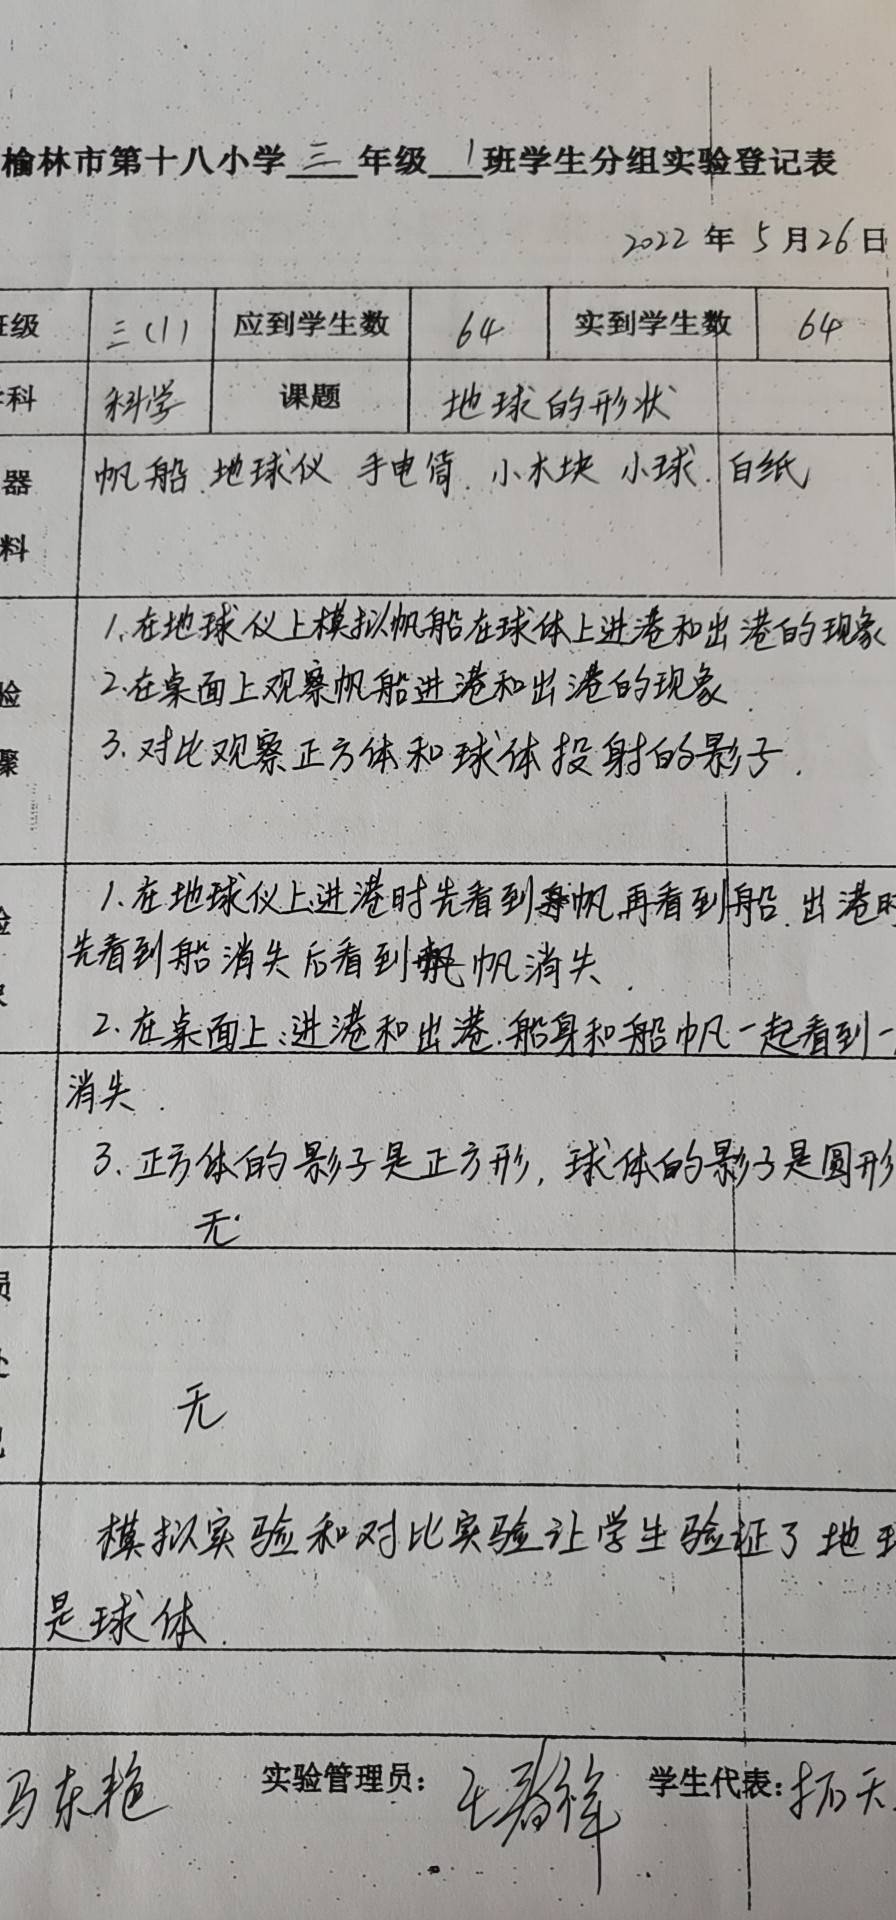 榆林市第十八小学 三 年级 1 班学生分组实验登记表
2022 年 5 月 26 日
级 三(1) 应到学生数 64 实到学生数 64
科 科学 课题 地球的形状
器 帆船 地球仪 手电筒 小木块 小球 白纸
料
1.在地球仪上模拟帆船在球体上进港和出港的现象
验 2.在桌面上观察帆船进港和出港的现象
骤 3.对比观察正方体和球体投射的影子.
1.在地球仪上进港时先看到帆再看到船 出港时
先看到船消失后看到帆消失.
2.在桌面上:进港和出港.船身和船帆一起看到一
消失.
3.正方体的影子是正方形,球体的影子是圆形
无
员
处
无
模拟实验和对比实验让学生验证了地球
是球体.
马东艳 实验管理员: 学生代表: